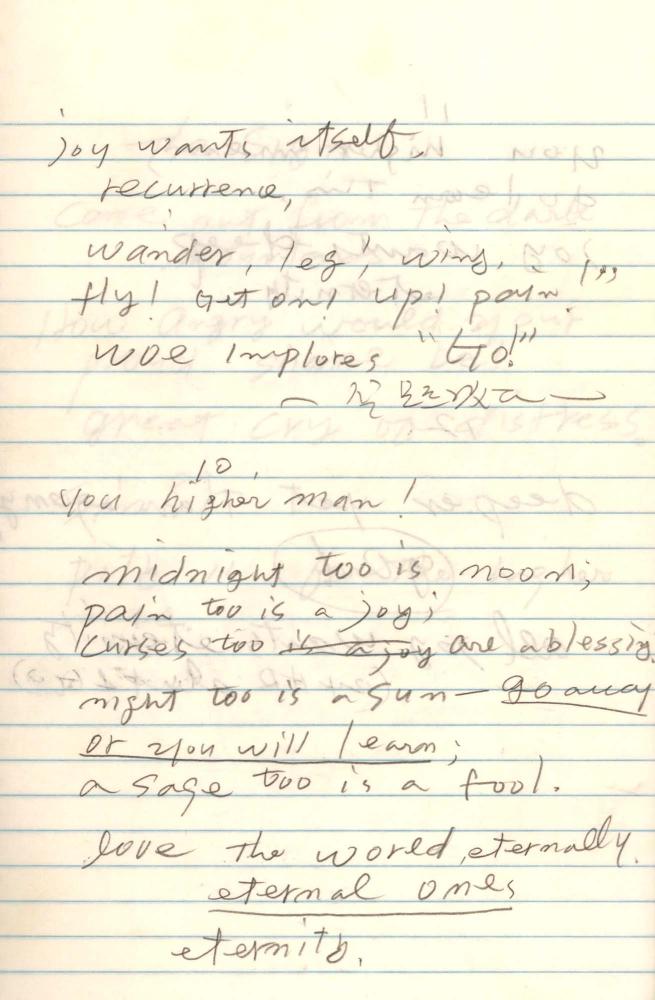 joy wants itself,
recurrence,
wander, leg! wing,
fly! Get on! up! pain!"
woe implores "Go!"
10,
you higher man!
midnight too is noon;
pain too is a joy;
curses too is a joy are a blessing.
night too is a sun — go away
or you will learn;
a sage too is a fool.
love the world, eternally.
eternal ones
eternity.